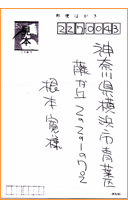 郵便はがき
2270043
神奈川県横浜市青葉区
藤が丘2-29-19-702
根本寛様